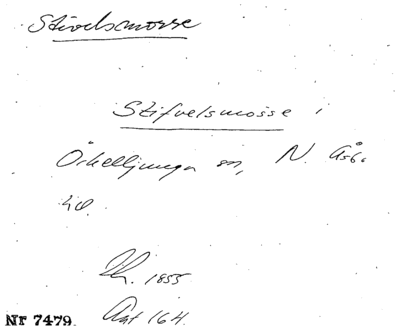 Stövelsmosse
Stifvelsmosse i
Örkelljunga sn, N. Åsb.
hd.
1855
Akt 164.
Nr 7479.